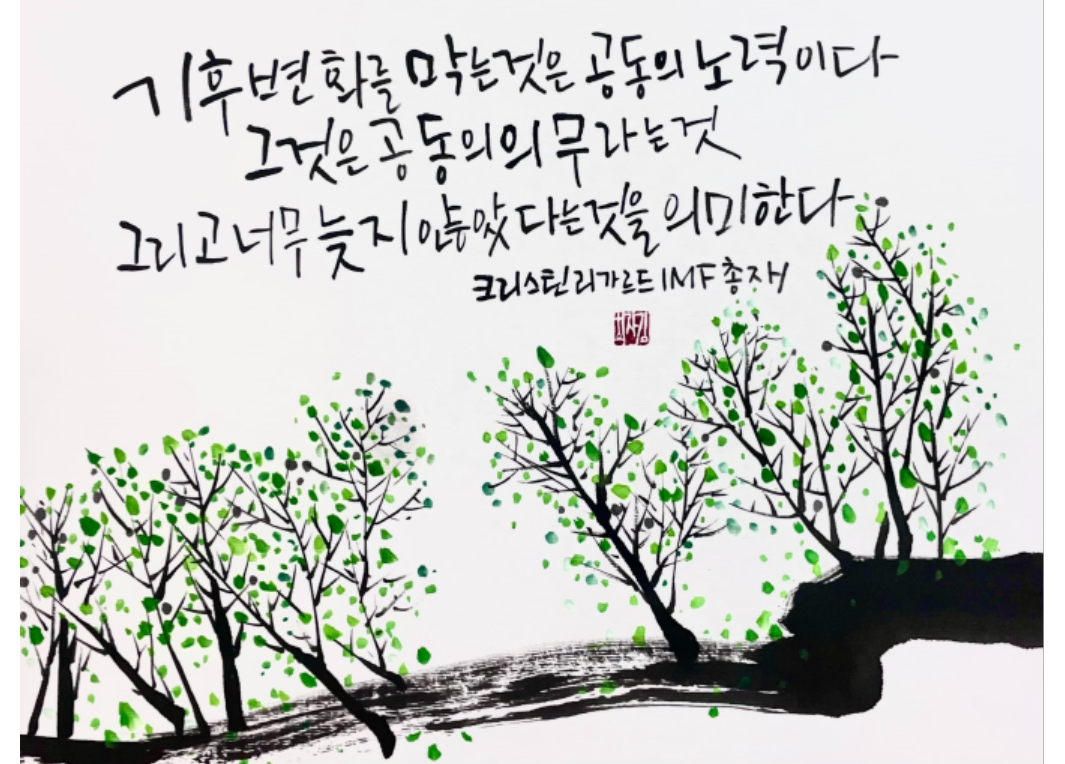 기후변화를 막는것은 공동의 노력이다
그것은 공동의 의무라는것
그리고 너무 늦지 않았다는것을 의미한다
크리스틴 리가르드 IMF 총재